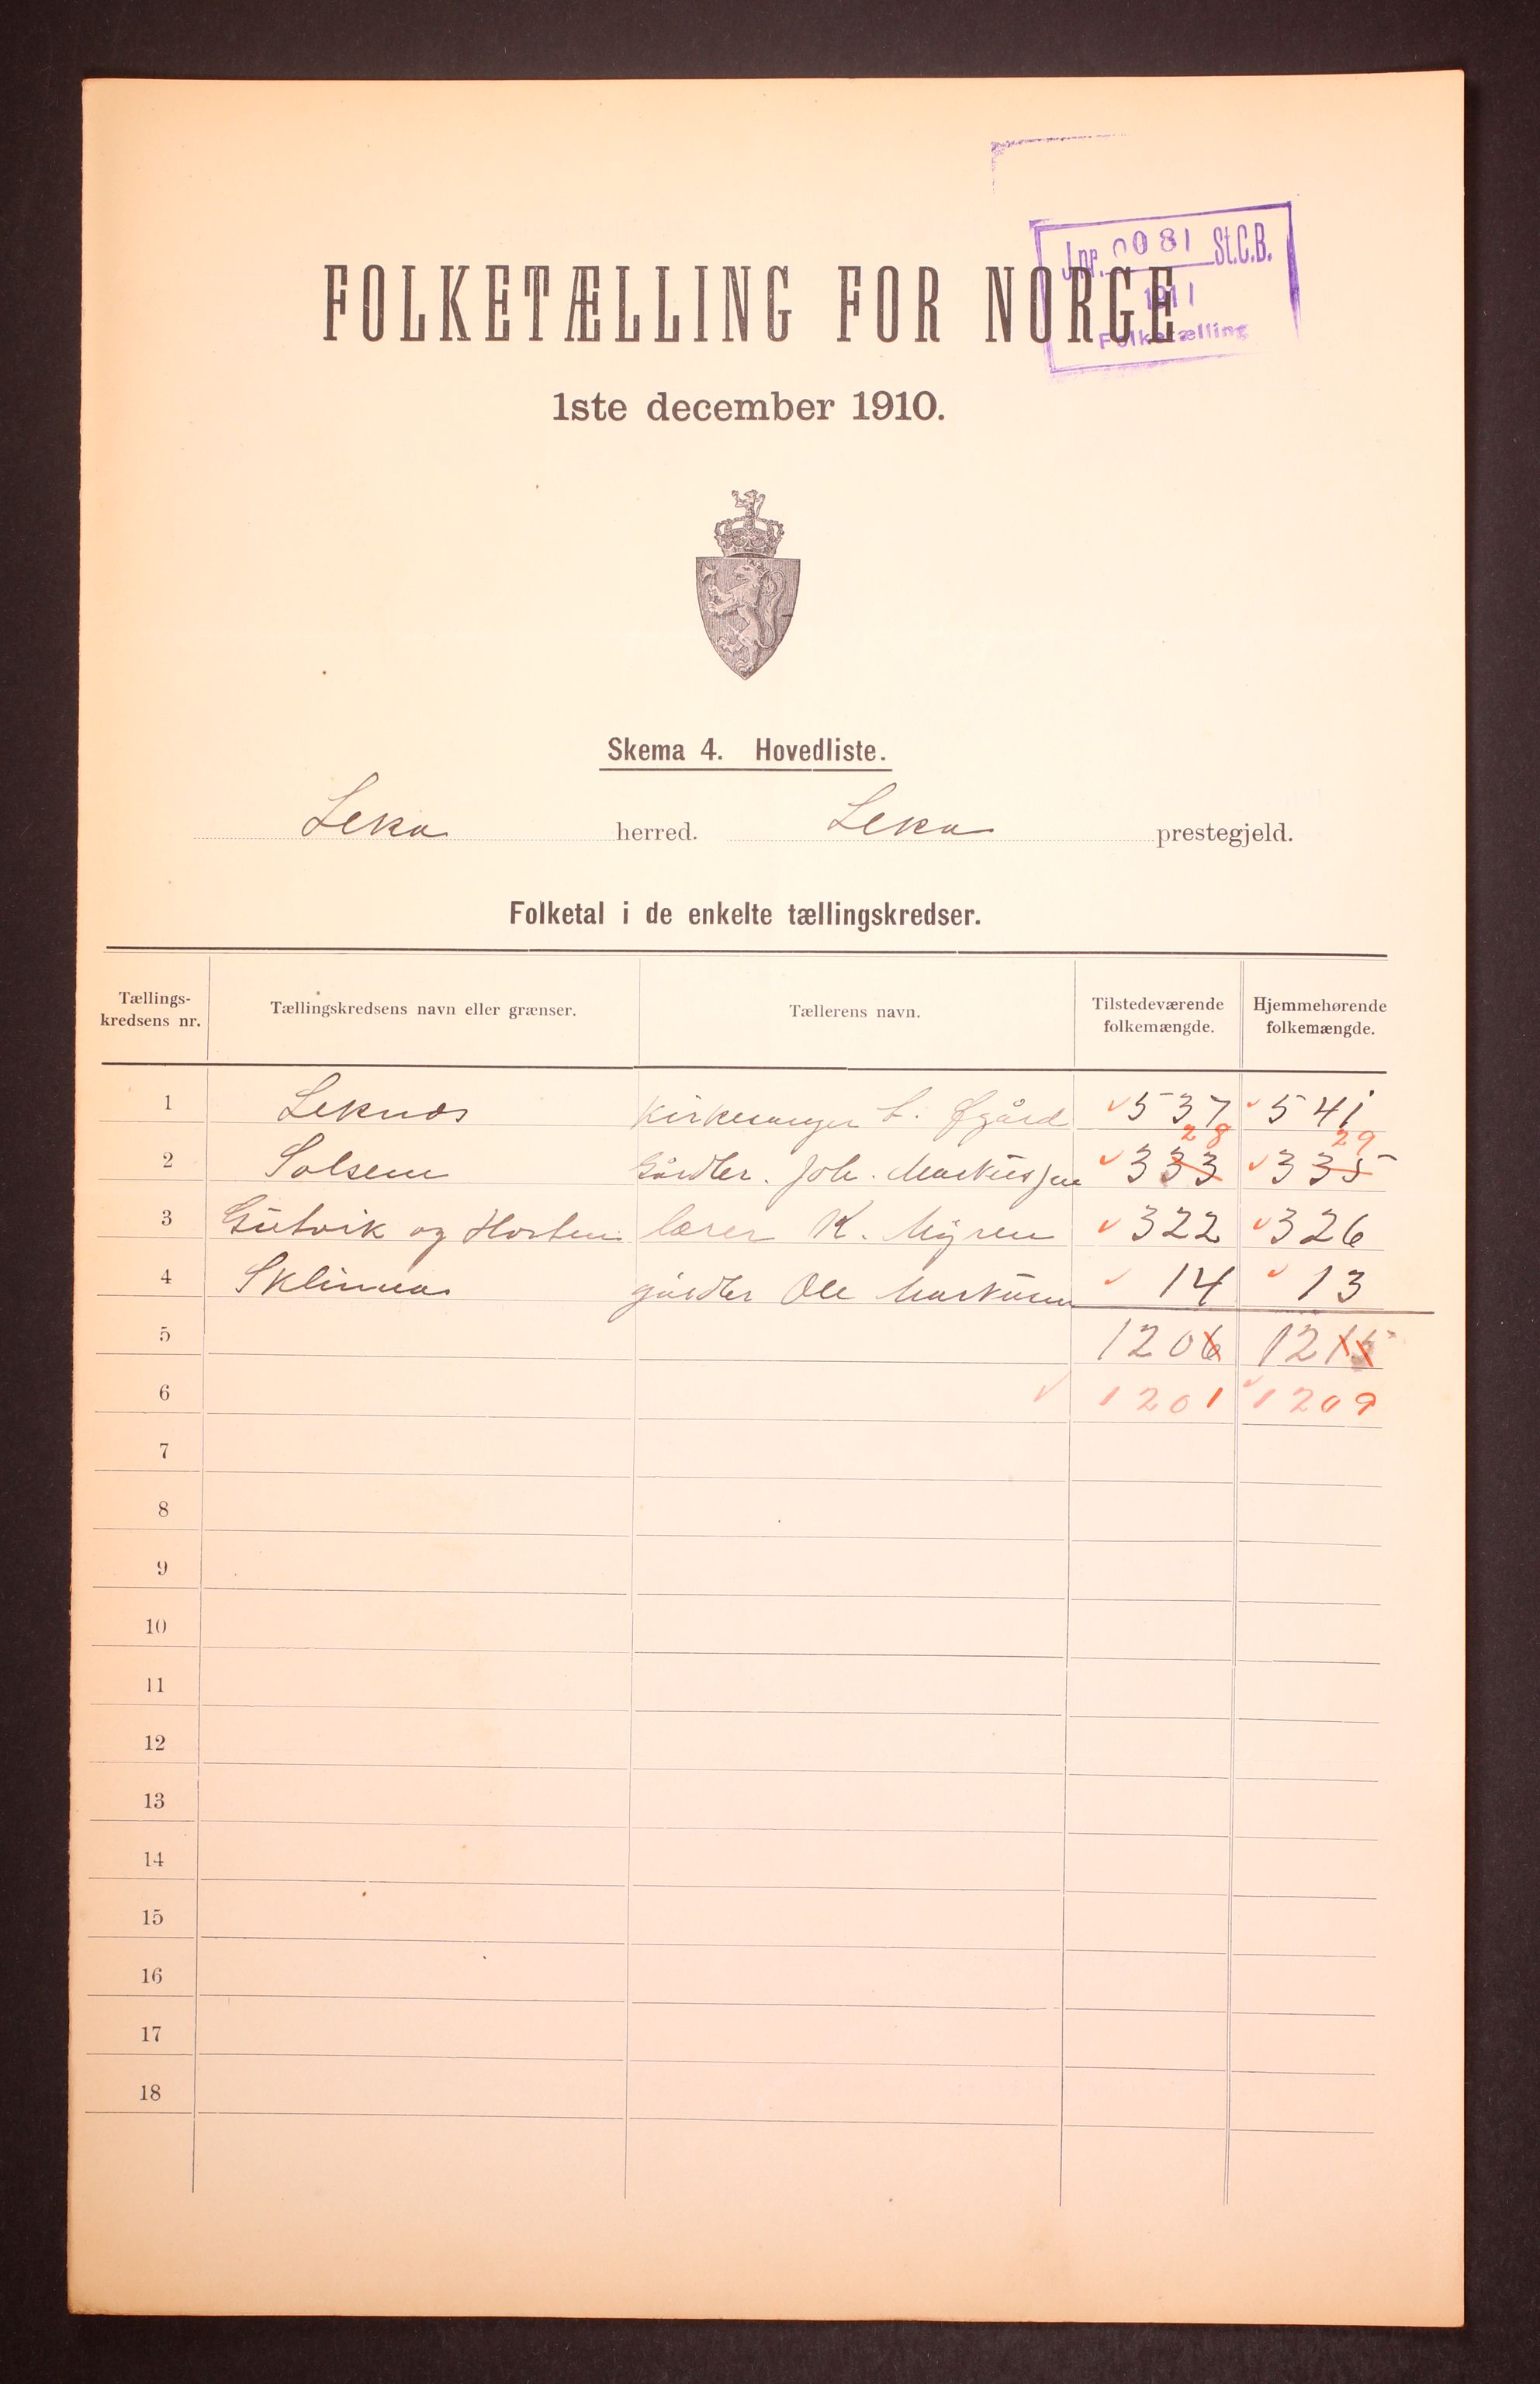 Jnr. 0081 St.C.B.
1911
Folketælling
FOLKETÆLLING FOR NORGE
1ste december 1910.
Skema 4. Hovedliste.
Leka herred. Leka prestegjeld.
Folketal i de enkelte tællingskredser.
Tællings-kredsens nr. Tællingskredsens navn eller grænser. Tællerens navn. Tilstedeværende folkemængde. Hjemmehørende folkemængde.
1 Leknes kirkesanger L. Øgård 537 541
28 29
2 Solsem Gårdbr. Joh. Markussen 333 335
3 Gutvik og Horten lærer K. Myren 322 326
4 Sklinna gårdbr Ole Markussen 14 13
5 1206 1215
6 1201 1209
7
8
9
10
11
12
13
14
15
16
17
18